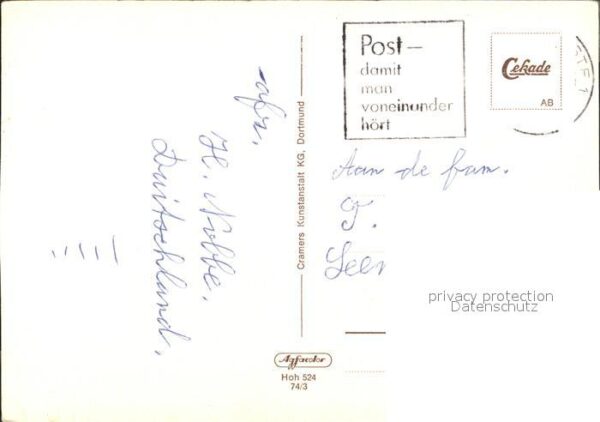 afz.
H. Nolbe.
Duitschland.
Cramers Kunstanstalt KG, Dortmund
Post—
damit
man
voneinander
hört
Cekade
AB
Aan de fam.
privacy protection
Datenschutz
Agfacolor
Hoh 524
74/3